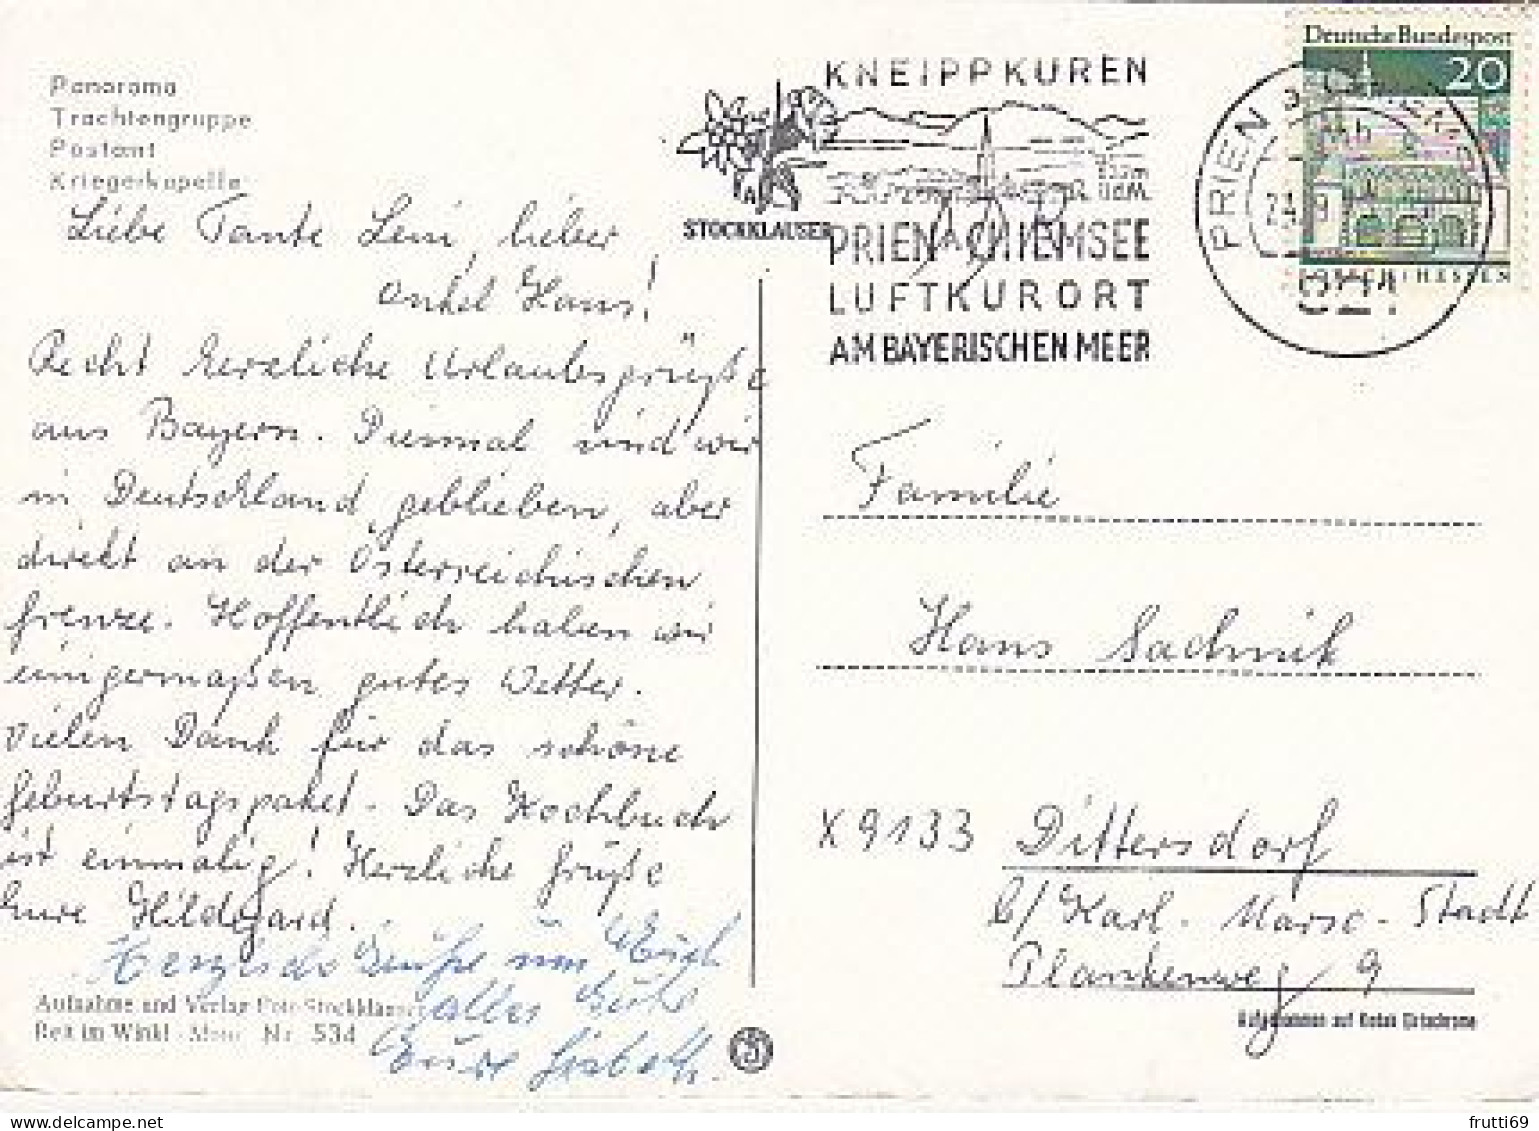 Panorama
Trachtengruppe
Postamt
Kriegerkapelle
Liebe Tante Leni, lieber
Onkel Hans!
Recht herzliche Urlaubsgrüße
aus Bayern. Diesmal sind wir
in Deutschland geblieben, aber
direkt an der Österreichischen
Grenze. Hoffentlich haben wir
einigermaßen gutes Wetter.
Vielen Dank für das schöne
Geburtstagspaket. Das Kochbuch
ist einmalig! Herzliche Grüße
Eure Hildegard.
Herzliche Grüße
alles Gute
Eure Lisbeth.
Aufnahme und Verlag Foto-Stockklauser
Reit im Winkl Nr. 534
STOCKKLAUSER
KNEIPPKUREN
533m
üdM
PRIEN A. CHIEMSEE
LUFTKURORT
AM BAYERISCHEN MEER
PRIEN a
Deutsche Bundespost
20
HESSEN
Familie
Hans Sachnik
X 9133 Dittersdorf
b/ Karl-Marx-Stadt
Plankenweg 9
Aufgenommen auf Kodak Ektachrome
frutti69